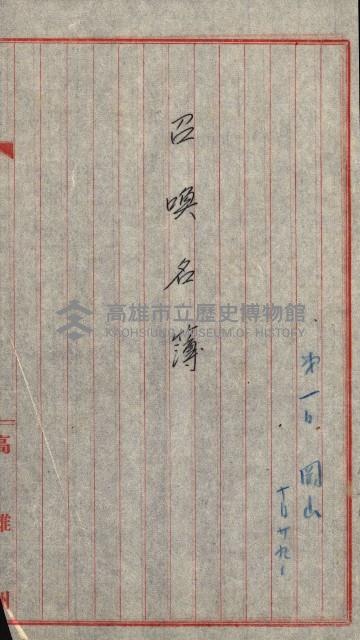 第一日 岡山
十月廿九日
召喚名簿
高雄市立歷史博物館
KAOHSIUNG MUSEUM OF HISTORY
高雄